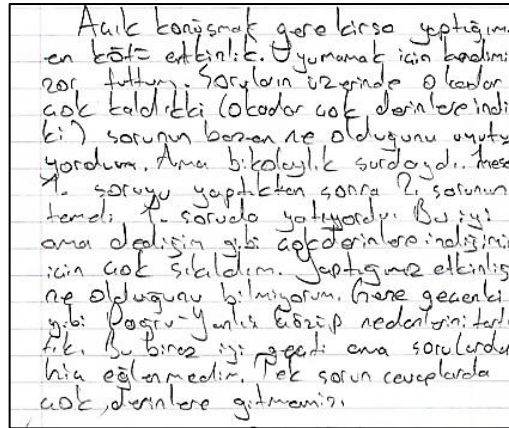 Açık konuşmak gerekirse yaptığım
en kötü etkinlik. Uyumamak için kendimi
zor tuttum. Soruların üzerinde o kadar
çok kaldıkki (okadar çok derinlere indi
ki) sorunun bazen ne olduğunu unutu
yordum. Ama bi kolaylık şurdaydı. mese
1. soruyu yaptıktan sonra 2. sorunun
temeli 1. soruda yatıyordu. Bu iyi
ama dediğim gibi çok derinlere indiğimiz
için çok sıkıldım. Yaptığımız etkinliğ
ne olduğunu bilmiyorum. Gene geçenki
gibi Doğru-Yanlış çözüp nedenlerini tartış
tık. Bu biraz iyi geçti ama sorularda
hiç eğlenmedim. Tek sorun cevaplarda
çok derinlere gitmemiz.